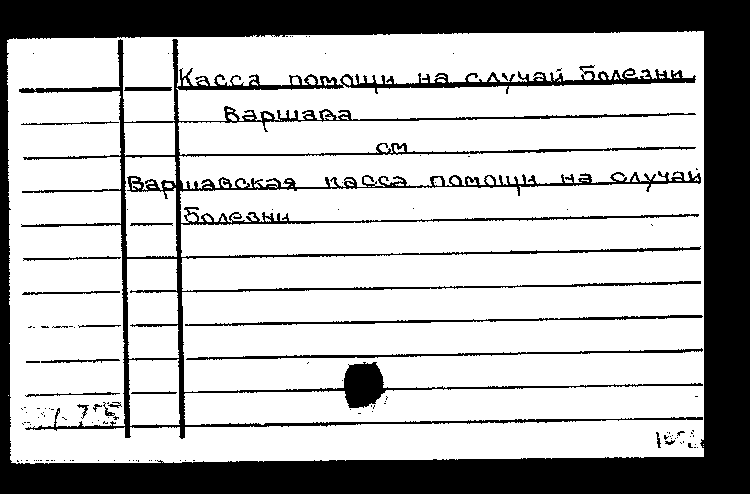 Касса помощи на случай болезни.
Варшава
см
Варшавская касса помощи на случай
болезни